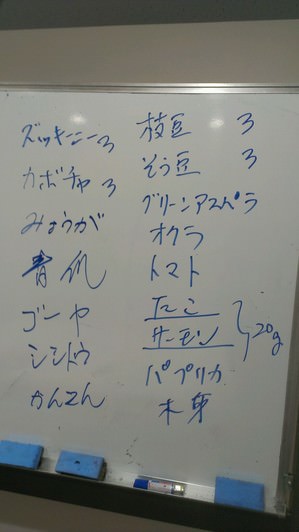 ズッキーニ 3
カボチャ 3
みょうが
青爪
ゴーヤ
シシトウ
かんてん
枝豆 3
そら豆 3
グリーンアスパラ
オクラ
トマト
たこ
サーモン
20g
パプリカ
木芽